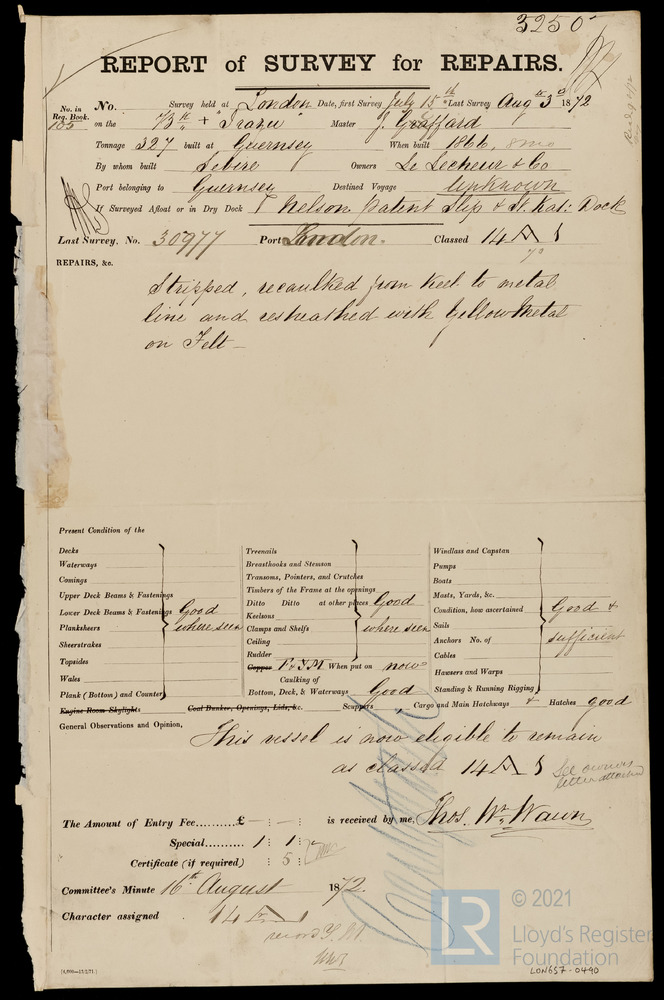 3250
REPORT of SURVEY for REPAIRS.
No. in Reg. Book. 105
No. Survey held at London Date, first Survey July 15th Last Survey Augt 3d 1872
on the Master J. Graffard
Tonnage 327 built at Guernsey When built 1866, 8mo
By whom built Sebire Owners Le Lecheur & Co
Port belonging to Guernsey Destined Voyage Unknown
If Surveyed Afloat or in Dry Dock Nelson Patent Slip & St. Kat: Dock
Last Survey, No. 30977 Port London. Classed 14 A 1
REPAIRS, &c.
Stripped, recaulked from Keel to metal
line and resheathed with Yellow Metal
on Felt —
Present Condition of the
Decks
Waterways
Comings
Upper Deck Beams & Fastenings
Lower Deck Beams & Fastenings
Planksheers
Sheerstrakes
Topsides
Wales
Plank (Bottom) and Counter
Good
where seen
Engine Room Skylights Coal Bunker, Openings, Lids, &c.
Treenails
Breasthooks and Stemson
Transoms, Pointers, and Crutches
Timbers of the Frame at the openings
Ditto Ditto at other places
Keelsons
Clamps and Shelfs
Ceiling
Rudder
Good
where seen
Copper F & YM When put on now
Caulking of
Bottom, Deck, & Waterways Good
Windlass and Capstan
Pumps
Boats
Masts, Yards, &c.
Condition, how ascertained
Sails
Anchors No. of
Cables
Hawsers and Warps
Standing & Running Rigging
Good &
sufficient
Scuppers , Cargo and Main Hatchways & Hatches good
General Observations and Opinion,
This vessel is now eligible to remain
as classed 14 A 1
See owners
letter attached
The Amount of Entry Fee..........£ — : — : is received by me,
Thos. Wm. Wawn
Special.......... 1 : 1 :
Certificate (if required) : 5 :
Committee's Minute 16th August 1872.
Character assigned 14 A 1
record Y.M
[4,000—13/2/71.]
LR
© 2021
Lloyd's Register
Foundation
LON657-0490